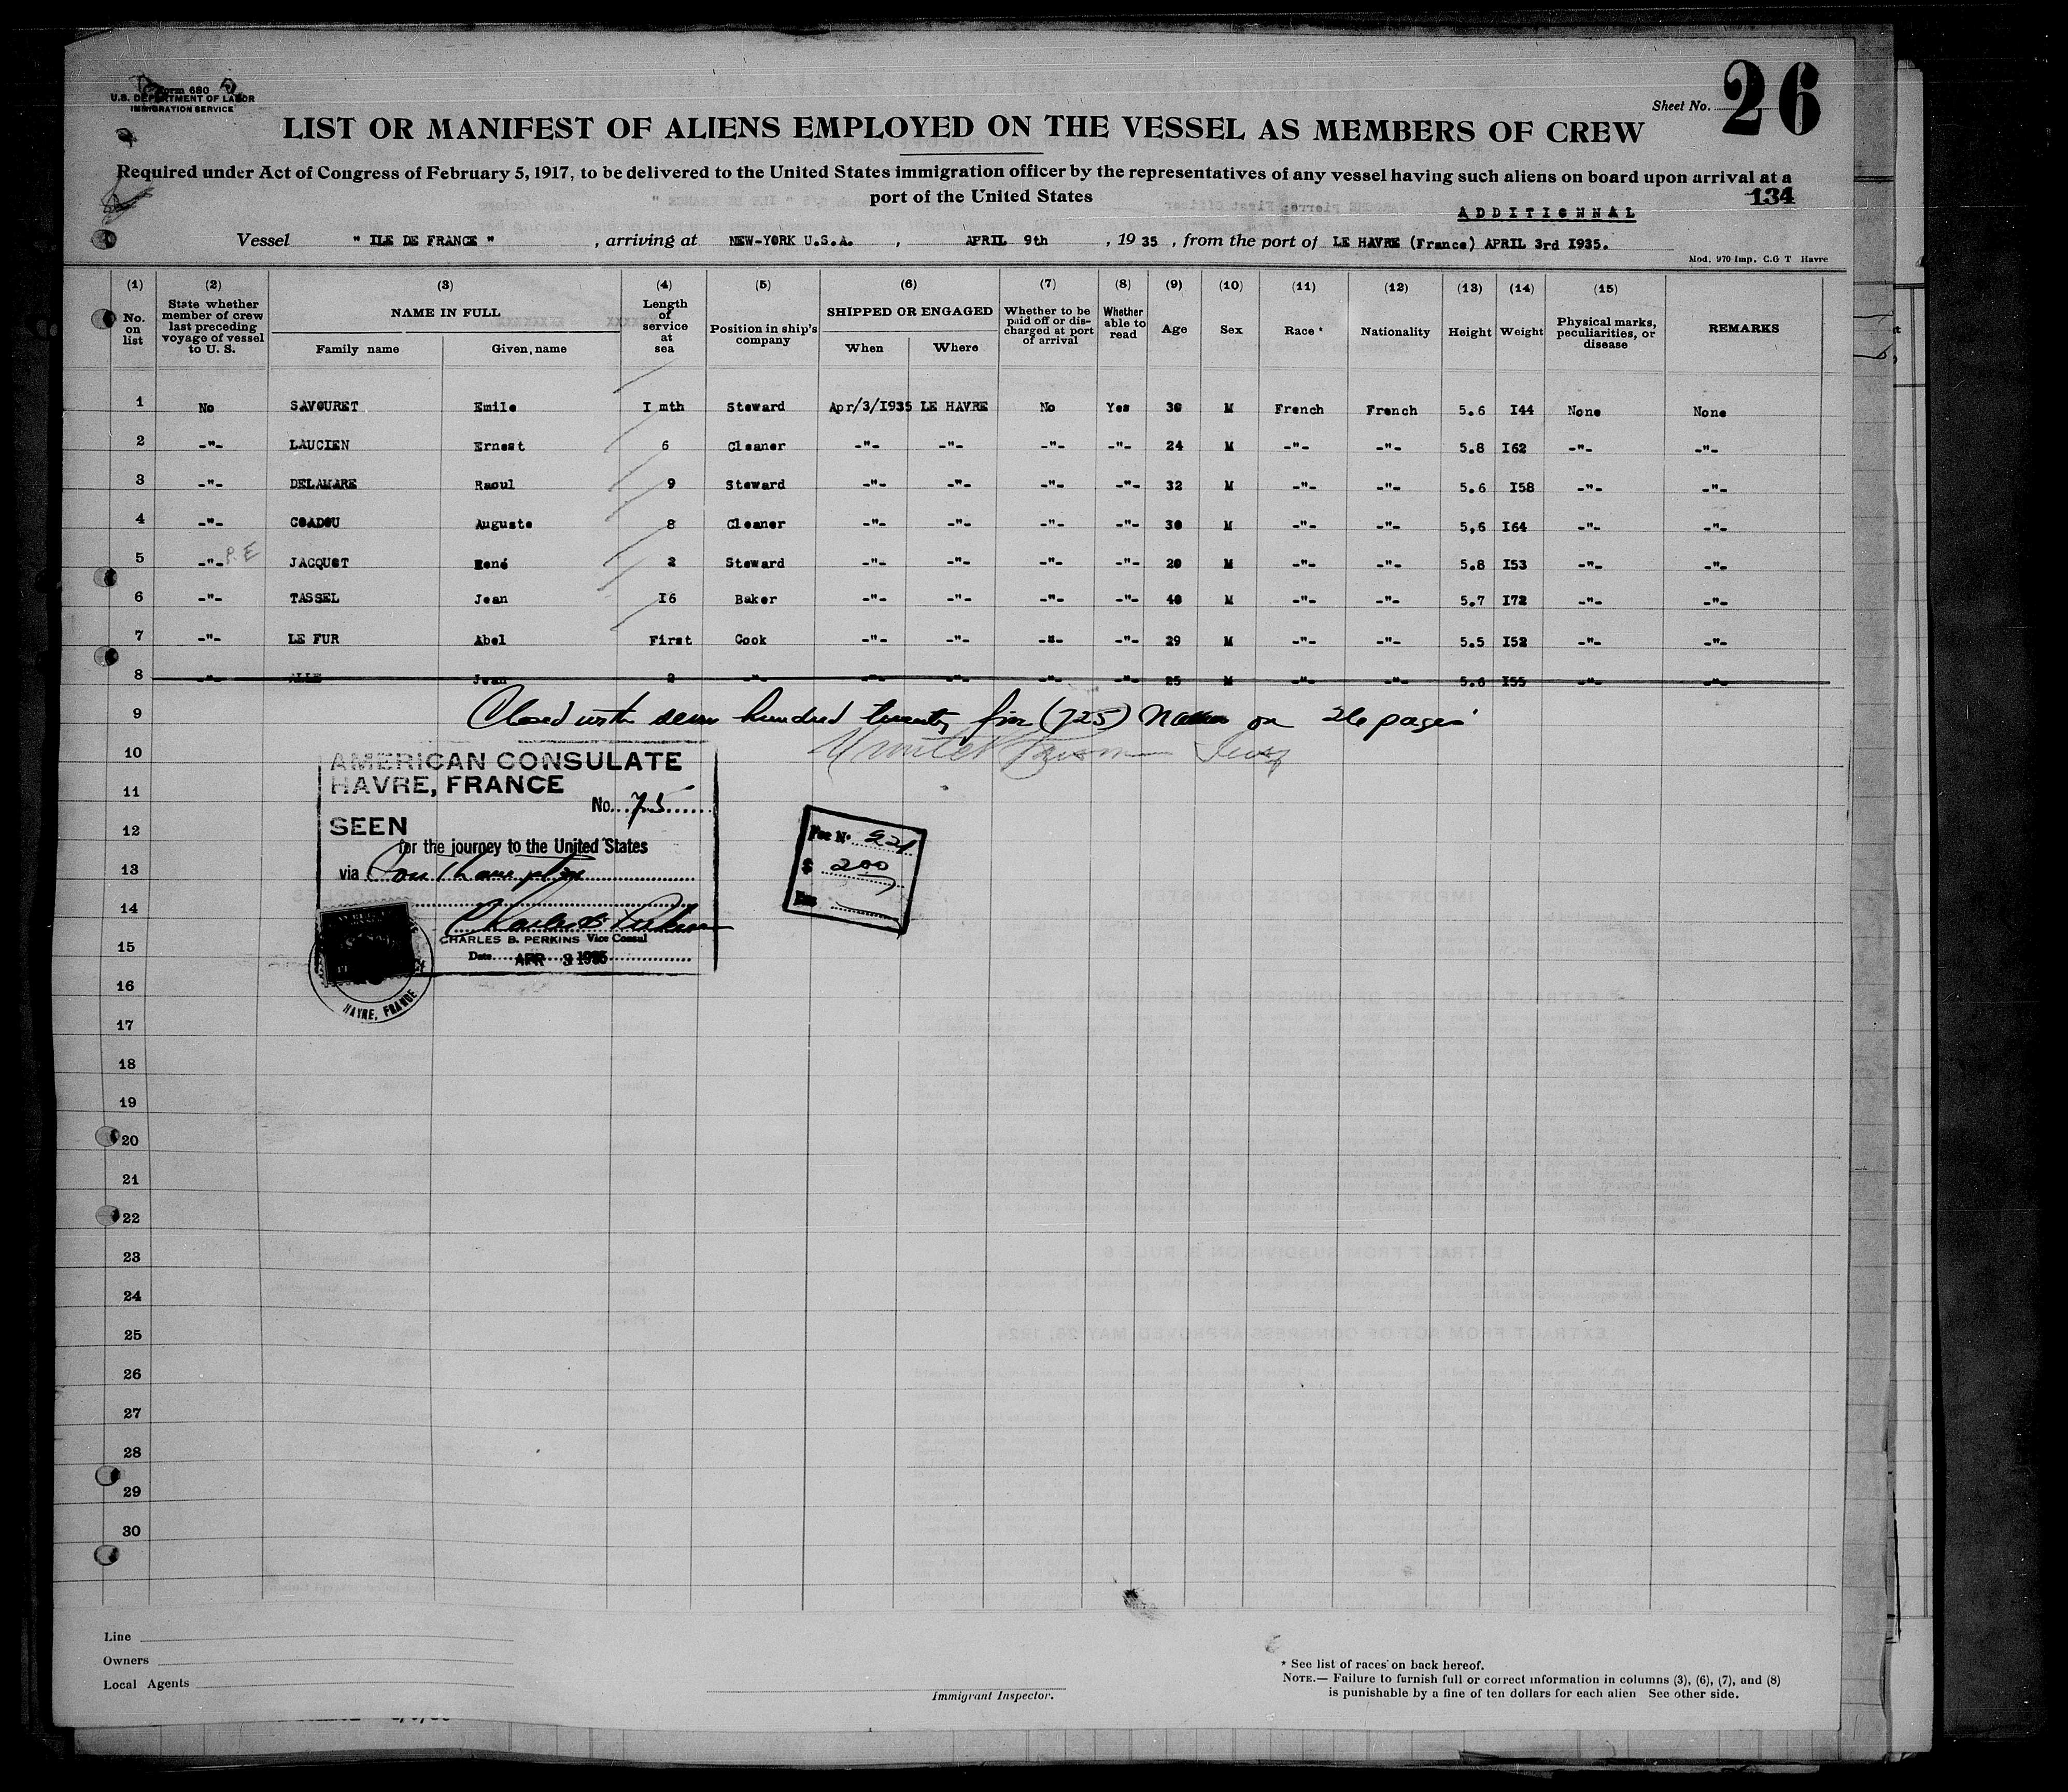 Form 680
U.S. DEPARTMENT OF LABOR
IMMIGRATION SERVICE
Sheet No. 26
LIST OR MANIFEST OF ALIENS EMPLOYED ON THE VESSEL AS MEMBERS OF CREW
Required under Act of Congress of February 5, 1917, to be delivered to the United States immigration officer by the representatives of any vessel having such aliens on board upon arrival at a
port of the United States
134
ADDITIONNAL
Vessel " ILE DE FRANCE ", arriving at NEW-YORK U.S.A., APRIL 9th, 1935, from the port of LE HAVRE (France) APRIL 3rd I935.
Mod. 970 Imp. C.G T Havre
(1) No. on list
(2) State whether member of crew last preceding voyage of vessel to U. S.
(3) NAME IN FULL Family name Given name
(4) Length of service at sea
(5) Position in ship's company
(6) SHIPPED OR ENGAGED When Where
(7) Whether to be paid off or discharged at port of arrival
(8) Whether able to read
(9) Age
(10) Sex
(11) Race *
(12) Nationality
(13) Height
(14) Weight
(15) Physical marks, peculiarities, or disease
REMARKS
1 No SAVOURET Emile I mth Steward Apr/3/I935 LE HAVRE No Yes 30 M French French 5.6 I44 None None
2 -"- LAUCIEN Ernest 6 Cleaner -"- -"- -"- -"- 24 M -"- -"- 5.8 I62 -"- -"-
3 -"- DELAMARE Raoul 9 Steward -"- -"- -"- -"- 32 M -"- -"- 5.6 I58 -"- -"-
4 -"- COADOU Auguste 8 Cleaner -"- -"- -"- -"- 30 M -"- -"- 5,6 I64 -"- -"-
5 -"- P.E JACQUOT René 2 Steward -"- -"- -"- -"- 20 M -"- -"- 5.8 I53 -"- -"-
6 -"- TASSEL Jean I6 Baker -"- -"- -"- -"- 40 M -"- -"- 5.7 I72 -"- -"-
7 -"- LE FUR Abel First Cook -"- -"- -"- -"- 29 M -"- -"- 5.5 I52 -"- -"-
8 -"- ALLE Jean 2 -"- -"- -"- -"- -"- 25 M -"- -"- 5.6 I55 -"- -"-
9 Closed with seven hundred twenty five (725) Names on 26 pages
10
11
12
13
14
15
16
17
18
19
20
21
22
23
24
25
26
27
28
29
30
AMERICAN CONSULATE
HAVRE, FRANCE
No. 75
SEEN
for the journey to the United States
via Southampton
Charles B. Perkins
CHARLES B. PERKINS Vice Consul
Date APR 3 1935
HAVRE, FRANCE
Fee No. 221
$ 2.00
Line
Owners
Local Agents
Immigrant Inspector.
* See list of races on back hereof.
NOTE.— Failure to furnish full or correct information in columns (3), (6), (7), and (8)
is punishable by a fine of ten dollars for each alien See other side.